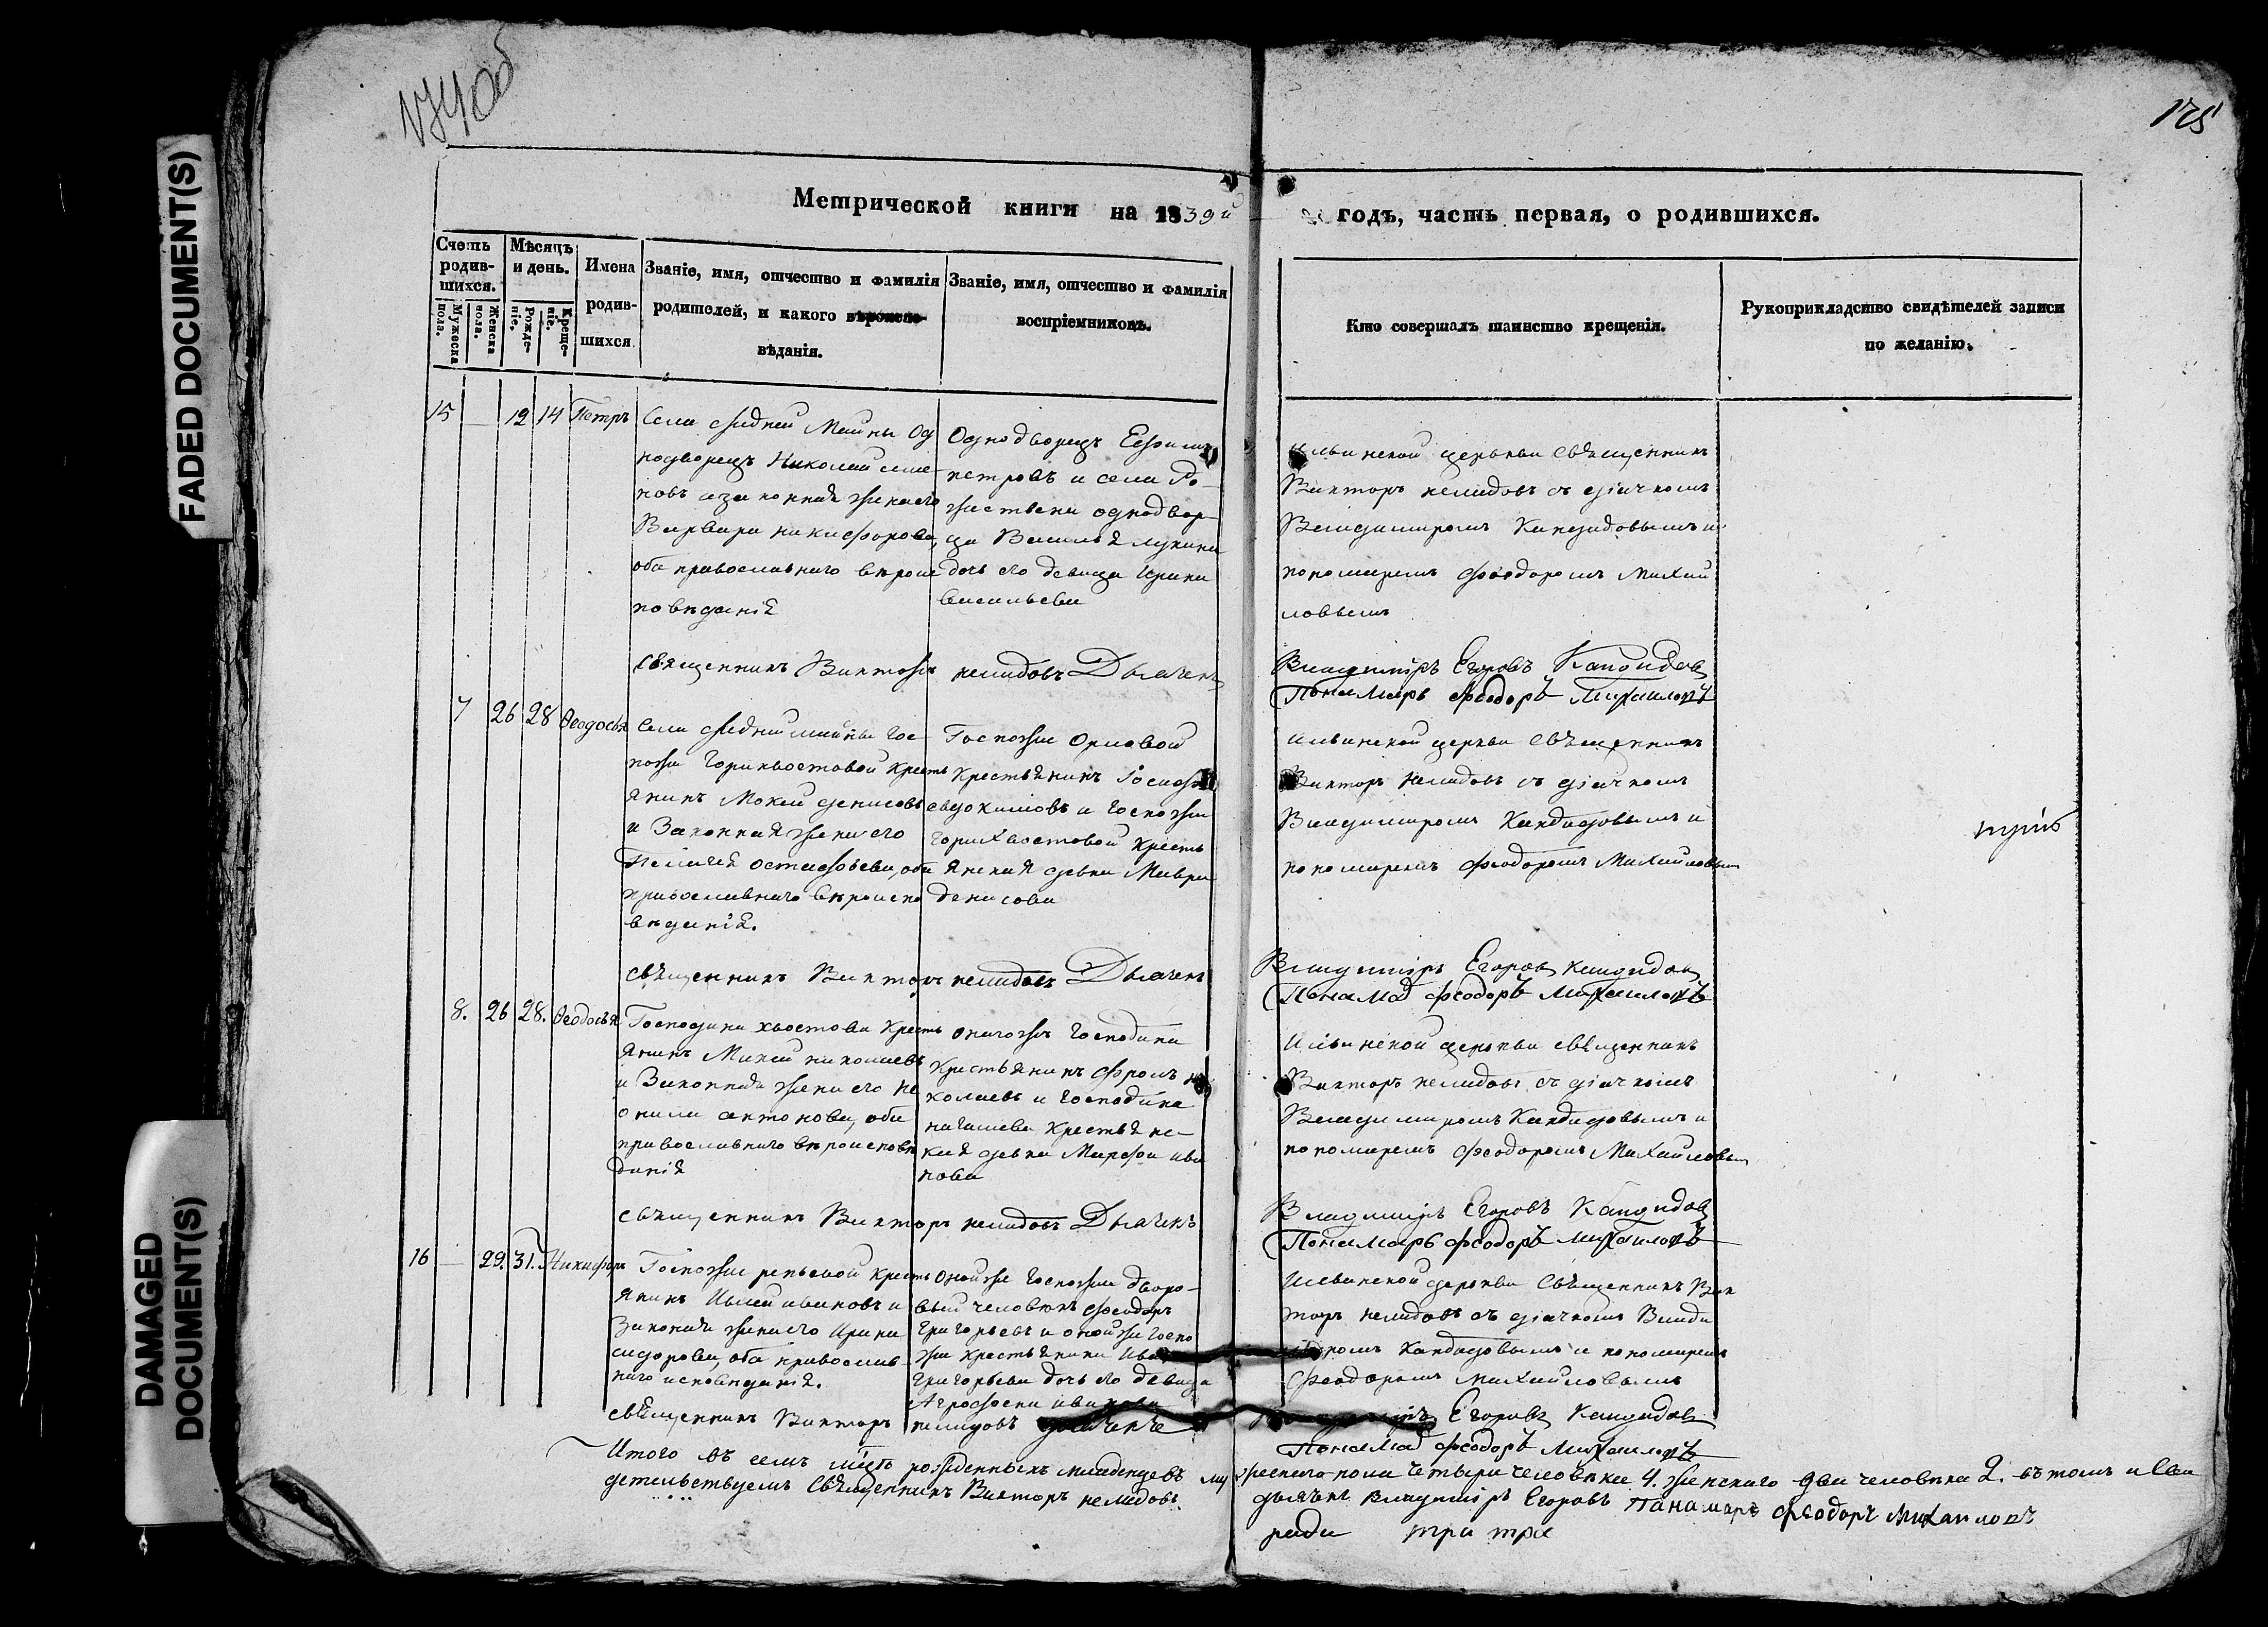 FADED DOCUMENT(S)
DAMAGED
DOCUMENT(S)
174об
175
Метрической книги на 1839й годъ, часть первая, о родившихся.
Счетъ
родив-
шихся.
Мужеска
пола.
Женска
пола.
Мѣсяцъ
и день.
Рожде-
ніе.
Креще-
ніе.
Имена
родив-
шихся
Званіе, имя, отчество и фамилія
родителей, и какого вѣроиспо-
вѣданія.
Званіе, имя, отчество и фамилія
воспріемниковъ.
Кто совершалъ таинство крещенія.
Рукоприкладство свидѣтелей записи
по желанію.
15 — 12 14 Петръ
Села средней Майны Од
нодворецъ Николай семе-
новъ изаконная женаего
Варвара никифорова,
оба православнаго вѣроис
повѣданія
Однодворецъ Ефимъ
петровъ и села Ро-
жествена однодвор-
ца Василья лукина
дочь его девица Ирина
васильева
Ильинской церькви священникъ
Викторъ нелидовъ съ дiачкомъ
Владимиромъ Кандидовымъ и
пономаремъ Феодоромъ Михай
ловымъ
священникъ Викторъ нелидовъ Дьячекъ
Владимiръ Егоровъ Кандидовъ
Понамарь Феодоръ Михаиловъ
7 26 28 Феодосья
Села средниймайны гос-
пожи горихвостовой кресть
янинъ Мокей денисовъ
и Законная жена его
Пелагея остафьева, оба
православнаго вѣроиспо
вѣданія.
Госпожи Орловой
Крестьянинъ
евдокимовъ и госпожи
горихвостовой кресть
янская девка Мавра
денисова
Ильинской церькви священникъ
Викторъ нелидовъ съ дiачкомъ
Владимиромъ Кандидовымъ и
пономаремъ Феодоромъ Михайловым
священникъ Викторъ нелидовъ Дьячекъ
Владимiръ Егоровъ Кандидов
Понамарь Феодоръ Михаиловъ
8. 26 28. Феодосья
Господина хвостова кресть
янинъ Михей николаевъ
и Законная жена его Не
онила антонова, оба
православнаго вѣроисповѣ
данія
оногожъ господина
Крестьянинъ Фролъ ни
колаевъ и господина
нагашева крестьянс-
кая девка Марфа ива
нова
Ильинской церькви священникъ
Викторъ нелидовъ съ дiачкомъ
Владимиромъ Кандидовымъ и
пономаремъ Феодоромъ Михайловым
священникъ Викторъ нелидовъ Дьячекъ
Владимiръ Егоровъ Кандидов
Понамарь Феодоръ Михаиловъ
16 — 29. 31. Никифоръ
Госпожи репьевой кресть
янинъ ивановъ и
Законная женаего Ирина
сидорова, оба православ
наго исповѣданія.
онойже госпожи дворо-
вый человѣкъ Феодоръ
григорьевъ и онойже госпо
жи крестьянина
григорьева дочь его девица
Агрофена иванова
Ильинской церькви Священникъ Вик
торъ нелидовъ съ дiачкомъ Влади
миромъ Кандидовымъ и пономаремъ
Феодоромъ михайловымъ
священникъ Викторъ нелидовъ дьячекъ
Егоровъ Кандидовъ
Понамарь Феодоръ Михаиловъ
Итого въ семъ рожденныхъ младенцевъ мужескаго пола четыре человѣка 4. женскаго два человѣка 2. въ томъ и Сви
детельствуемъ Священникъ Викторъ нелидовъ. дьячекъ Владимiръ Егоровъ Панамарь Феодоръ Михаиловъ